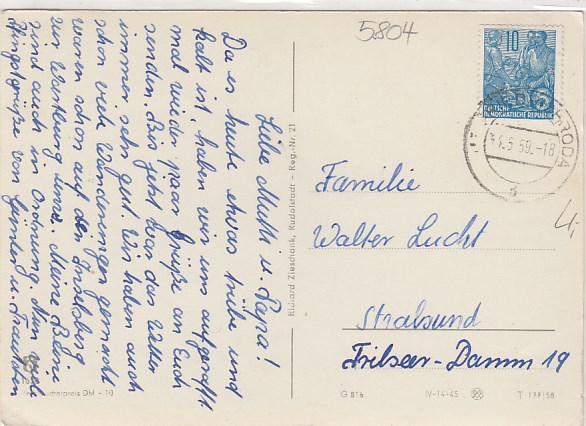 5804
Liebe Mutti u. Papa!
Da es heute etwas trübe und
kalt ist, haben wir uns aufgerafft
mal wieder paar Grüße an Euch
senden. Bis jetzt war das Wetter
immer sehr gut. Wir haben auch
schon viel Wanderungen gemacht
waren schon auf den Inselsberg
zur Wartburg usw. Meine Beine
sind auch in Ordnung. Nun viele
Pfingstgrüße von Günter u.
Richard Zieschank, Rudolstadt - Reg.-Nr. 21
10
DEUTSCHE
DEMOKRATISCHE REPUBLIK
5
RODA
.5.59.-18
d
Familie
Walter Lucht
Stralsund
Tribseer-Damm 19
4,-
DM -,10
G 816
IV-14-45
T 159/58